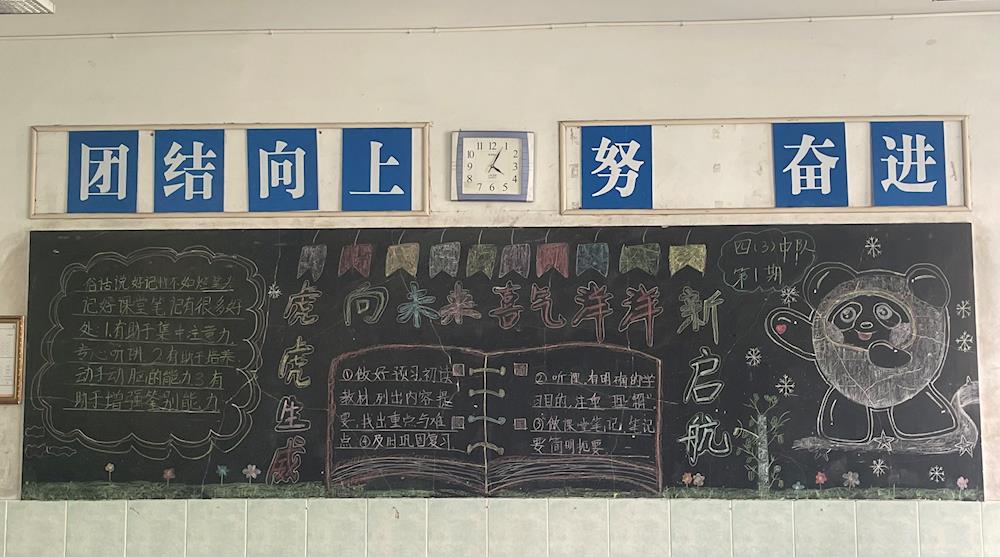 团结向上
努 奋进
四(3)中队
第1期
向未来喜气洋洋
虎虎生威
新启航
俗话说好记性不如烂笔头
记好课堂笔记有很多好
处:1.有助于集中注意力,
专心听讲 2有助于培养
动手动脑的能力3有
助于增强鉴别能力
①做好预习初读
教材,列出内容提
要,找出重点与难
点④及时巩固复习
②听课,有明确的学
习目的,注意“理解”
③做课堂笔记,笔记
要简明扼要
12
1
2
3
4
5
6
7
8
9
10
11